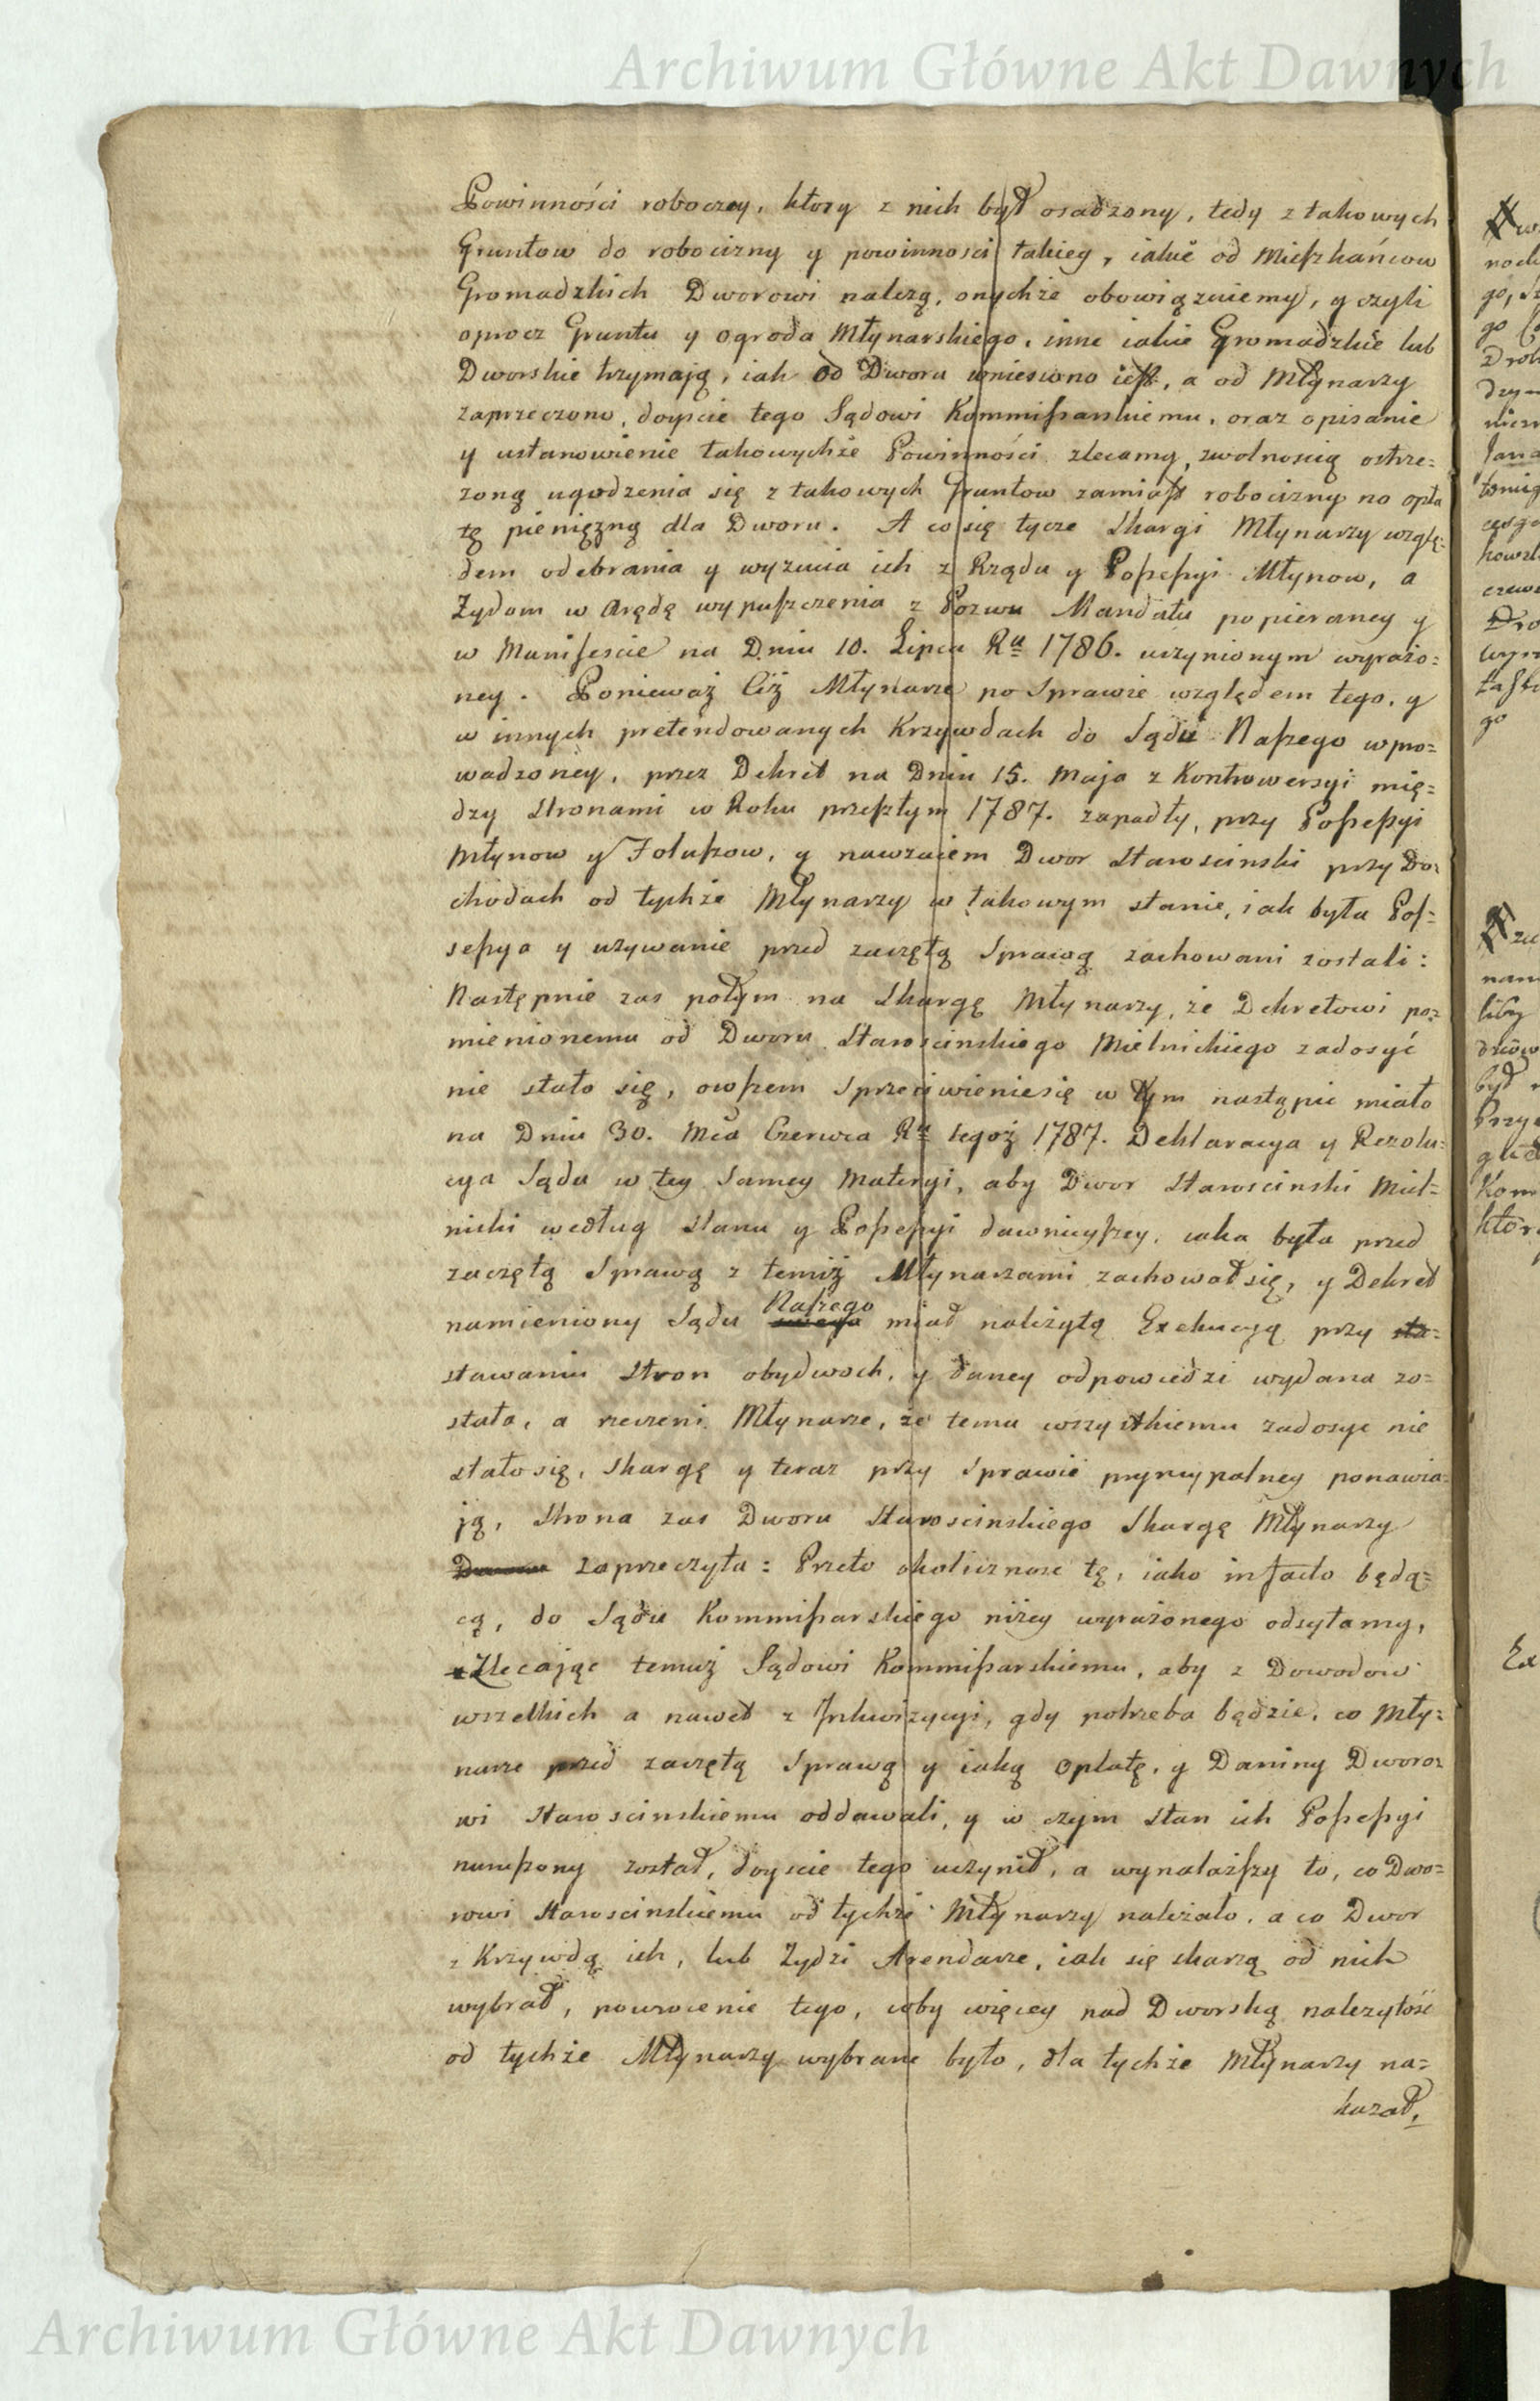 Archiwum Główne Akt Dawnych
Powinności roboczey, ktory z nich był osadzony, tedy z takowych
Gruntow do robocizny y powinnosci takiey, iakie od Mieszkańcow
Gromadzkich Dworowi należą, onychże obowiązuiemy, y czyli
oprocz Gruntu y ogroda Młynarskiego, inne iakie Gromadzkie lub
Dworskie trzymaią, iak od Dworu wniesiono iest, a od Młynarzy
zaprzeczono, doyscie tego Sądowi Kommissarskiemu, oraz opisanie
y ustanowienie takowychże Powinności zlecamy, zwolnoscią ostrze=
zoną ugodzenia się z takowych Gruntow zamiast robocizny na opła
tę pienięzną dla Dworu. A co się tycze Skargi Młynarzy wzglę=
dem odebrania y wyzucia ich z Rządu y Possessyi Młynow, a
Żydom w Arędę wypuszczenia z Pozwu Mandatu popieraney y
w Manifescie na Dniu 10. Lipca Ru 1786. uczynionym wyrażo=
ney. Ponieważ Ciż Młynarze po Sprawie względem tego, y
w innych pretendowanych Krzywdach do Sądu Naszego wpro=
wadzoney, przez Dekret na Dniu 15. Maja z Kontrowersyi mię=
dzy Stronami w Roku przeszłym 1787. zapadły, przy Possessyi
Młynow y Foluszow, y nawzaiem Dwor Starosciński przy Do=
chodach od tychże Młynarzy w takowym stanie, iak była Pos=
sessya y uzywanie przed zaczętą Sprawą zachowani zostali:
Następnie zas potym na Skargę Młynarzy, że Dekretowi po=
mienionemu od Dworu Staroscinskiego Mielnickiego zadosyć
nie stało się, owszem Sprzeciwieniesię w tym nastąpić miało
na Dniu 30. Mca Czerwca Ru tegoż 1787. Deklaracya y Rezolu=
cya Sądu w tey Samey Materyi, aby Dwor Staroscinski Miel=
nicki według Stanu y Possessyi dawnieyszey, iaka była przed
zaczętą Sprawą z temiż Młynarzami zachował się, y Dekret
namieniony Sądu Naszego miał należytą Exekucyą przy
stawaniu Stron obydwoch, y daney odpowiedzi wydana zo=
stała, a rzeczeni Młynarze, że temu wszystkiemu zadosyc nie
stało się, Skargę y teraz przy Sprawie pryncypalney ponawia=
ją, Strona zas Dworu Staroscinskiego Skargę Młynarzy
zaprzeczyła: Przeto okolicznosc tę, iako in facto będą=
cą, do Sądu Kommissarskiego niżey wyrażonego odsyłamy,
Zlecając temuż Sądowi Kommissarskiemu, aby z Dowodow
wszelkich a nawet z Inkwizycyi, gdy potrzeba będzie, co Mły=
narze przed zaczętą Sprawą y iaką Opłatę, y Daniny Dworo=
wi Staroscinskiemu oddawali, y w czym Stan ich Possessyi
naruszony został, doyscie tego uczynił, a wynalazszy to, co Dwo=
rowi Staroscinskiemu od tychże Młynarzy należało, a co Dwor
z Krzywdą ich, lub Żydzi Arendarze, iak się skarzą od nich
wybrał, powrocenie tego, coby więcey nad Dworską nalezytość
od tychże Młynarzy wybrane było, dla tychże Młynarzy na=
kazał,
Archiwum Główne Akt Dawnych